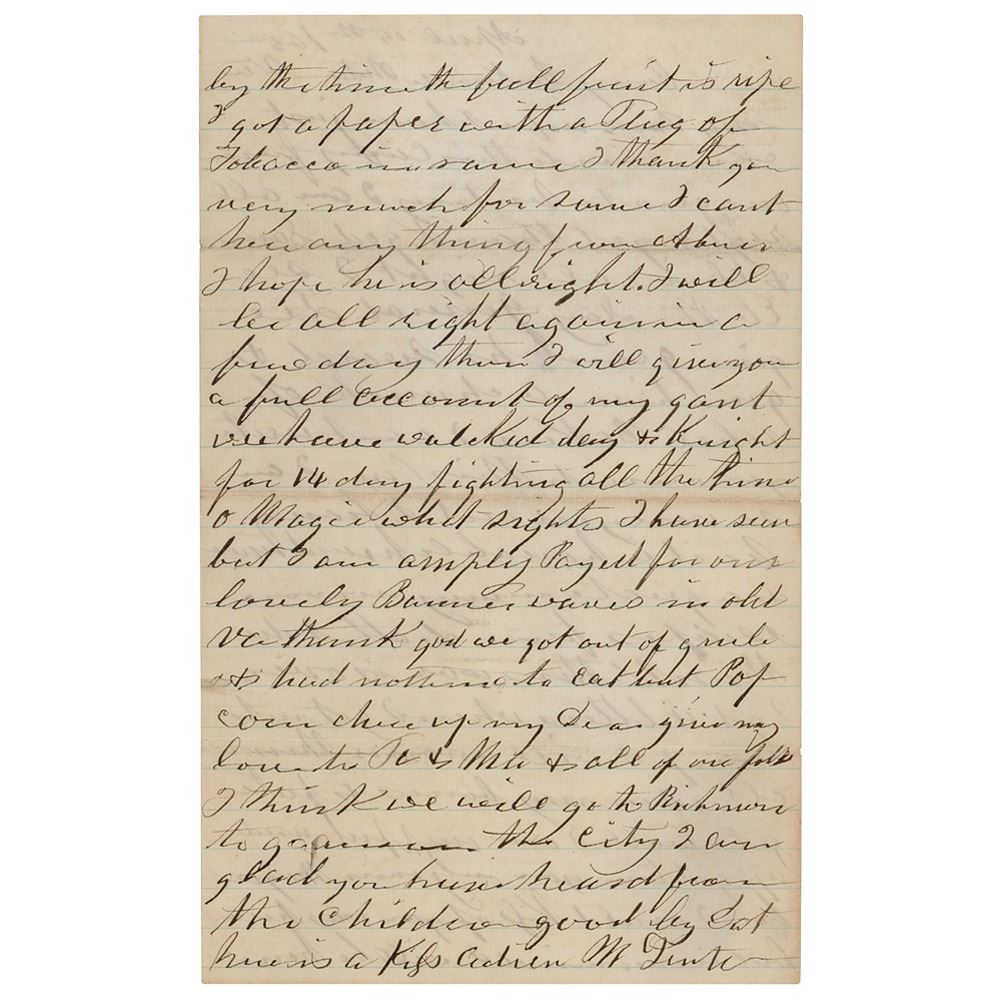 by the time the fall fruit is ripe
I got a paper with a Plug of
Tobacco in same I thank you
very much for same I cant
hear any thing from Abner
I hope he is allright. I will
be all right again in a
few day then I will give you
a full account of my gant
we have walcked day & Knight
for 14 day fighting all the time
O Magie what sights I have seen
but I am amply Payed for our
lovely Banner waves in old
Va thank god we got out of grub
& had nothing to Eat but Pop
corn chee up my Dear give my
love to Pa & Ma & all of our folks
I think we will go to Richmon
to the City I am
glad you have heard from
the Children good by
here is a Kiss W